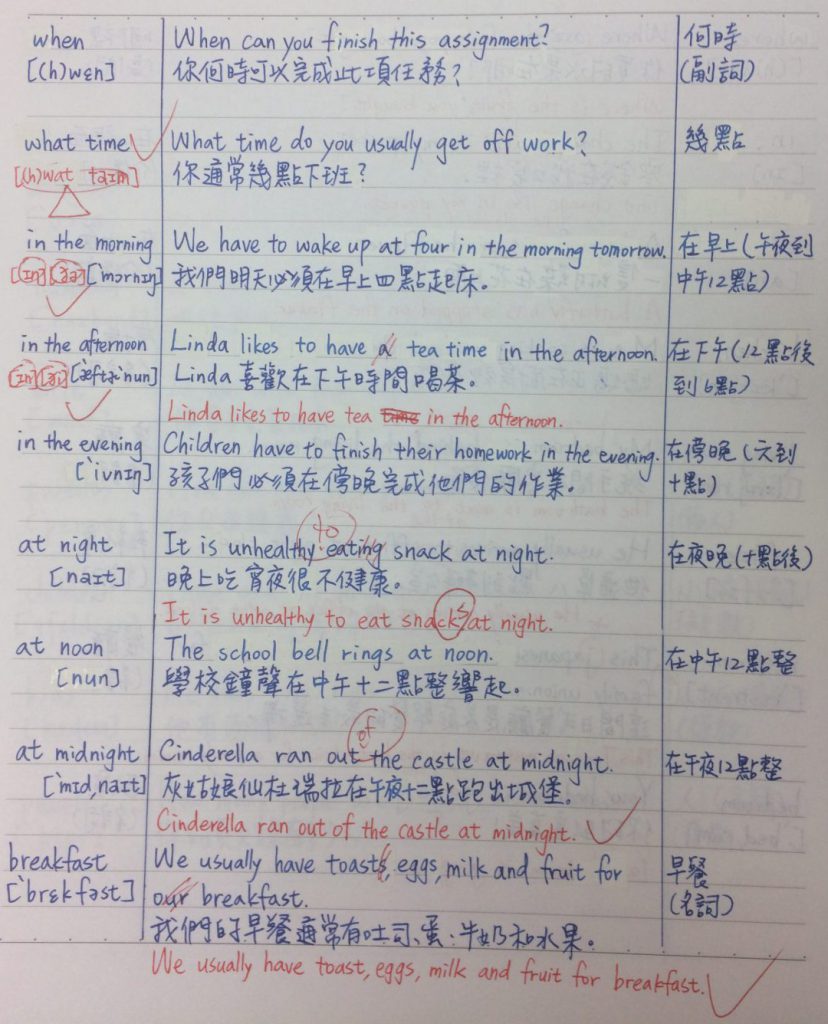 when
When can you finish this assignment?
何時
[(h)wɛn]
你何時可以完成此項任務？
(副詞)
what time
What time do you usually get off work?
幾點
[(h)wat taɪm]
你通常幾點下班？
in the morning
We have to wake up at four in the morning tomorrow.
在早上(午夜到
[ɪn] [ðə] [ˋmɔrnɪŋ]
我們明天必須在早上四點起床。
中午12點)
in the afternoon
Linda likes to have a tea time in the afternoon.
在下午(12點後
[ɪn] [ði] [ˋæftɚˋnun]
Linda 喜歡在下午時間喝茶。
到6點)
Linda likes to have tea time in the afternoon.
in the evening
Children have to finish their homework in the evening.
在傍晚(六到
[ˋivnɪŋ]
孩子們必須在傍晚完成他們的作業。
十點)
to
at night
It is unhealthy eating snack at night.
在夜晚(十點後)
[naɪt]
晚上吃宵夜很不健康。
It is unhealthy to eat snacks at night.
at noon
The school bell rings at noon.
在中午12點整
[nun]
學校鐘聲在中午十二點整響起。
of
at midnight
Cinderella ran out the castle at midnight.
在午夜12點整
[ˋmɪd,naɪt]
灰姑娘仙杜瑞拉在午夜十二點跑出城堡。
Cinderella ran out of the castle at midnight.
breakfast
We usually have toasts, eggs, milk and fruit for
早餐
[ˋbrɛkfəst]
our breakfast.
(名詞)
我們的早餐通常有吐司、蛋、牛奶和水果。
We usually have toast, eggs, milk and fruit for breakfast.